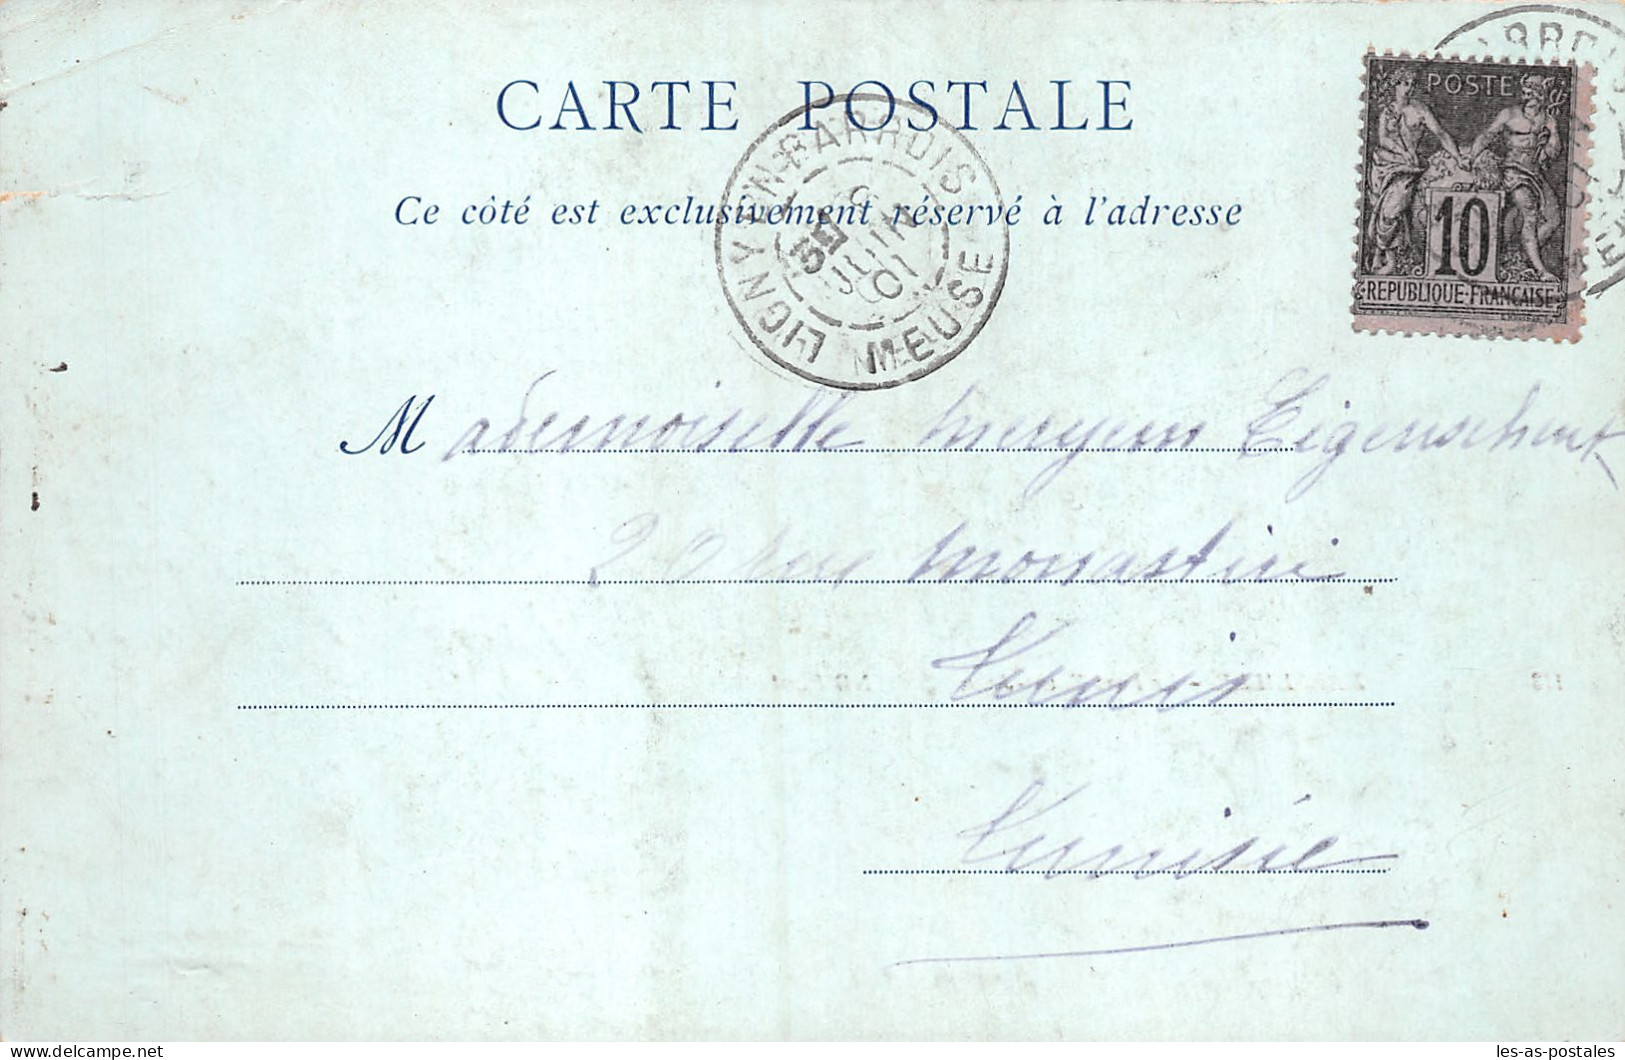 CARTE POSTALE
Ce côté est exclusivement réservé à l'adresse
LIGNY-EN-BARROIS
JUIN
01
MEUSE
POSTE
10
REPUBLIQUE FRANÇAISE
Mademoiselle Meryem Eigenschenk
20 rue Monastiri
Tunis
Tunisie
delcampe.net
les-as-postales